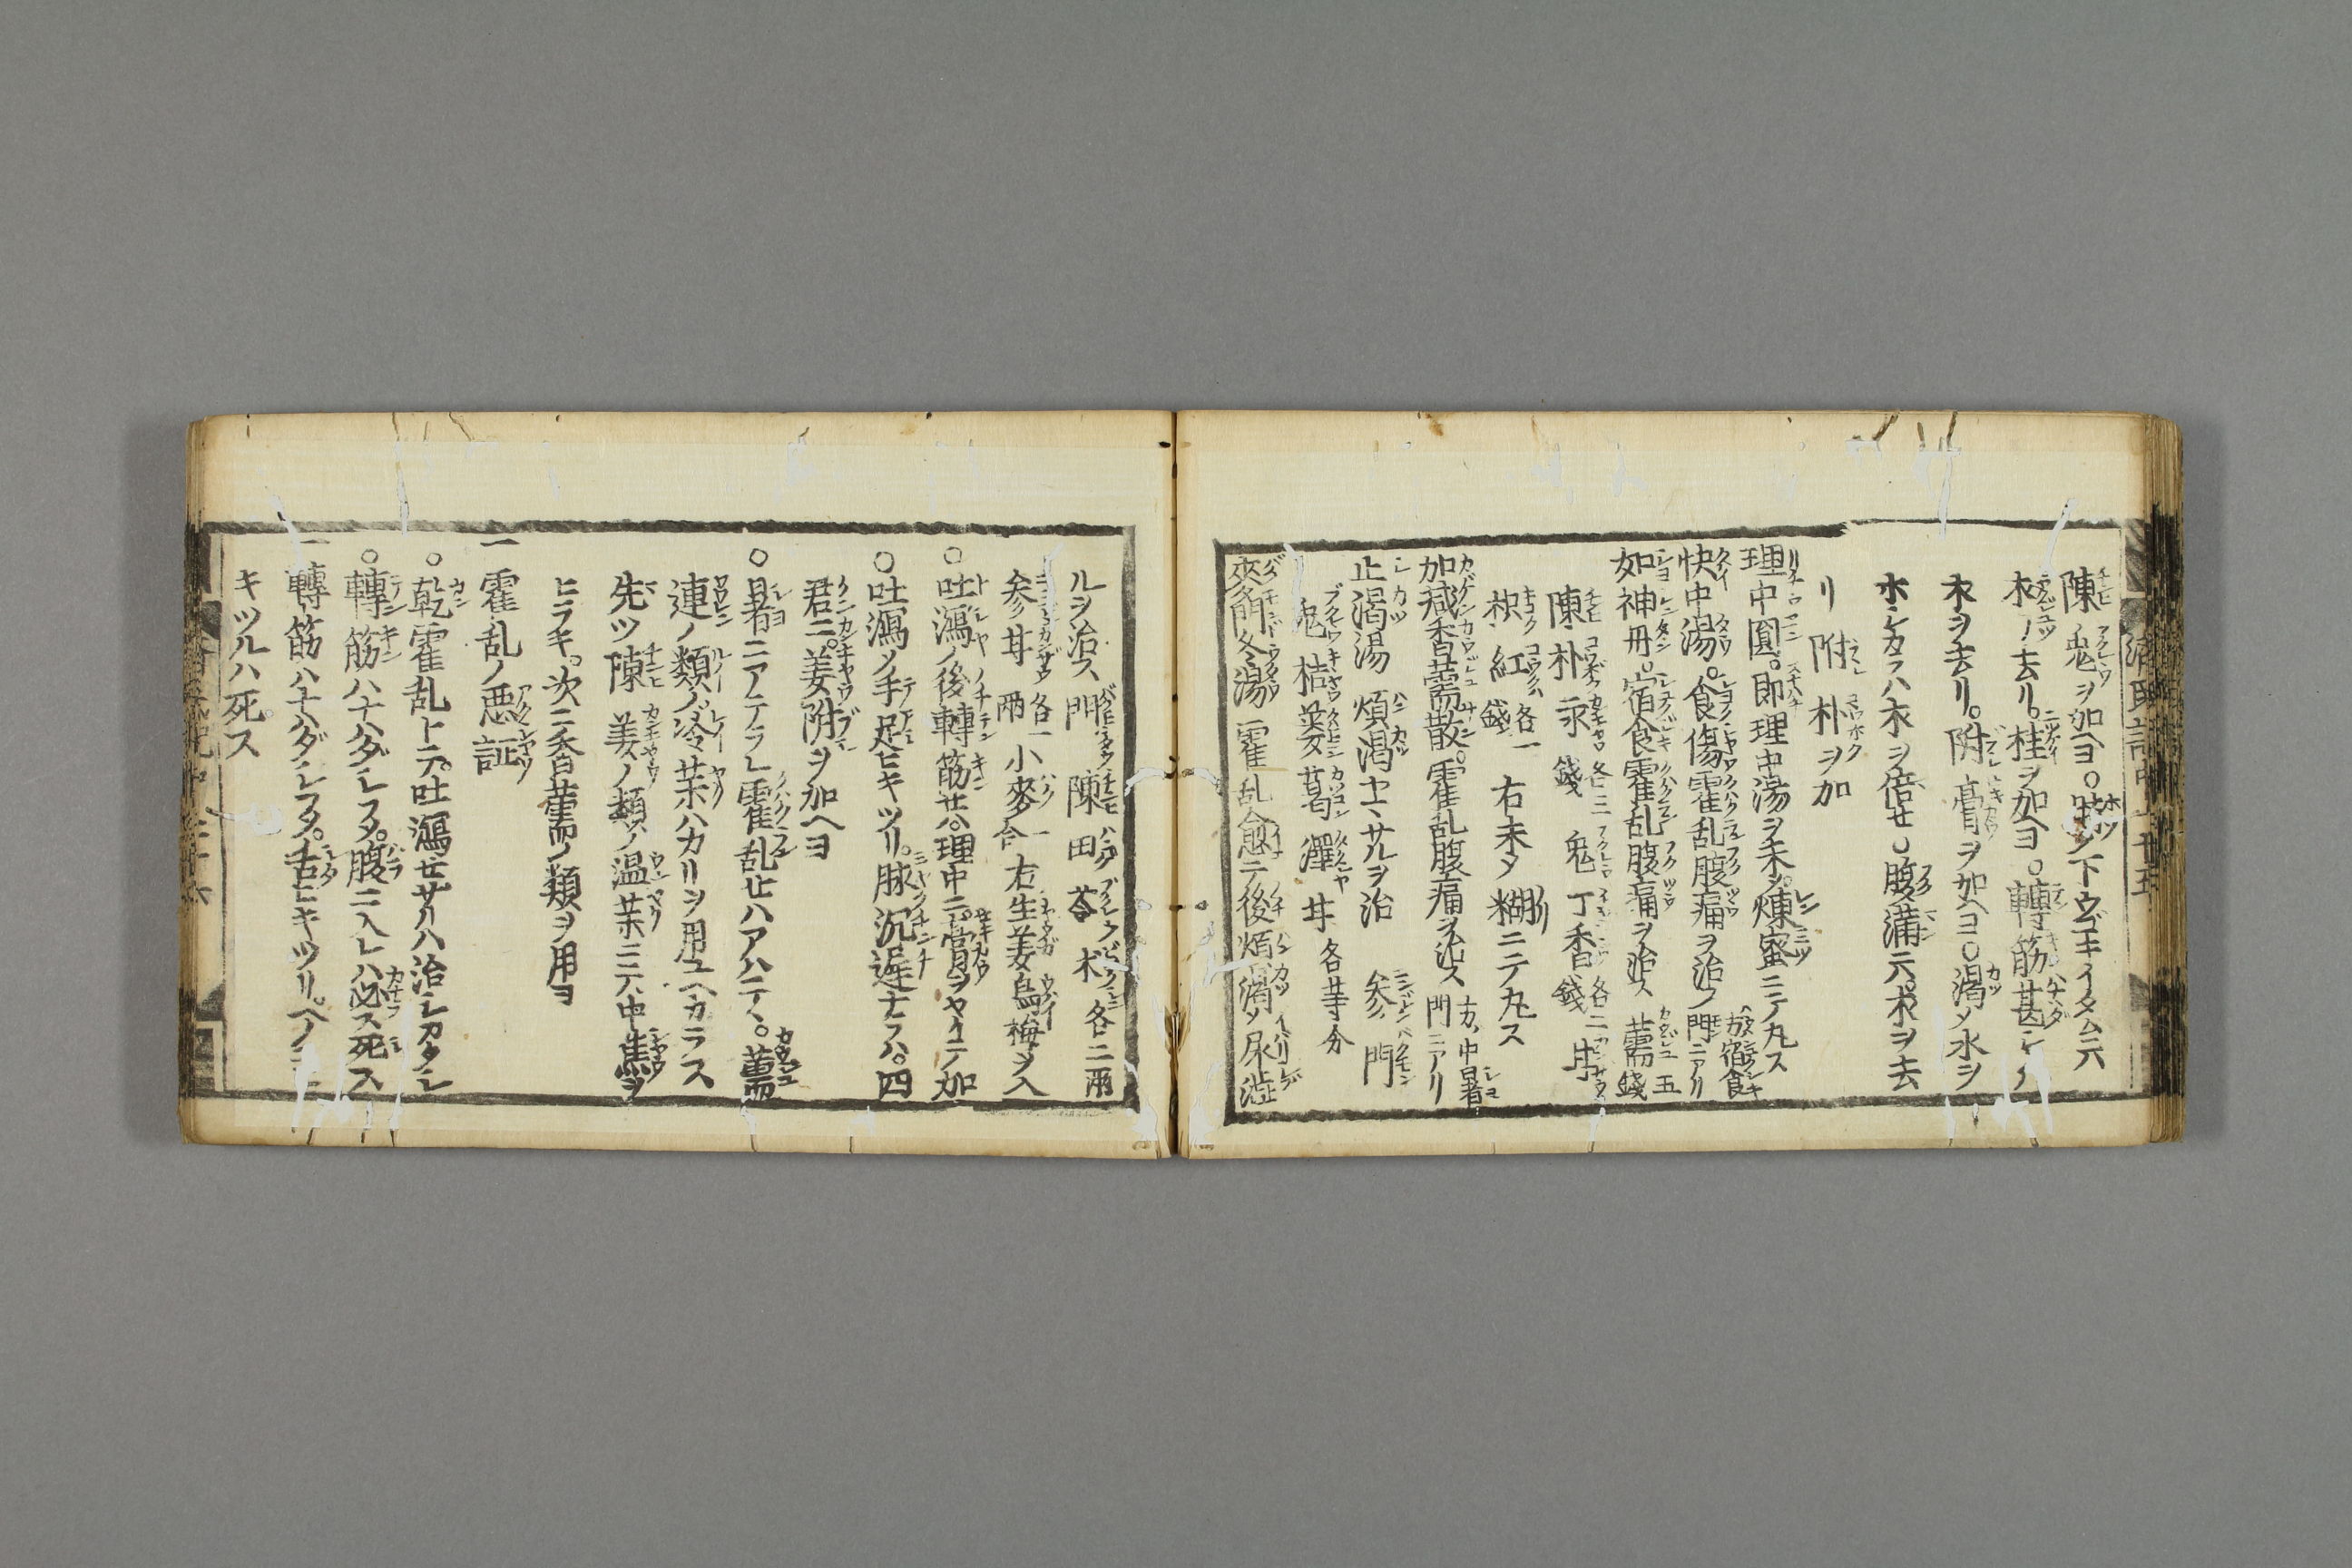 陳 鬼ヲ加ヘヨ○臍ノ下ウゴキイタム六
朮ノ去リ。桂ヲ加ヘヨ○轉筋甚シノ
朮ヲ去リ。附 膏ヲ加ヘヨ○渇メ水ヲ
ホシカラハ朮ヲ倍セ○腹満六。朮ヲ去
リ 附 朴ヲ加
理中圓。即理中湯ヲ禾シ煉蜜ニテ丸ス
快中湯。食傷霍乱腹痛ヲ治ノ
方宿食門ニアリ
如神丹。宿食霍乱腹痛ヲ治ス 薷 五錢
陳 朴 永 各三錢 鬼 丁香 各二錢 甘
枳 紅 各一錢 右末メ糊ニテ丸ス
加減香薷散。霍乱腹痛ヲ治ス
方、中暑門ニアリ
止渇湯 煩渇ヤマサルヲ治 參 門
鬼 桔 蔞 葛 澤 甘 各等分
麥門冬湯 霍乱愈テ後煩渇メ尿澁
ルヲ治ス 門 陳 田 苓 木 各二兩
參 甘 各一兩 小麥 一合 右生姜烏梅ヲ入
○吐瀉ノ後轉筋セハ。理中ニ。膏ヲヤイテ加
○吐瀉ノ手足ヒキツリ。脉沉遅ナラハ。四
君ニ。姜附ヲ加ヘヨ
○暑ニアテラレ霍乱セハアハテヽ。薷
連ノ類ノ冷茶ハカリヲ用ユヘカラス
先ツ陳 姜ノ類ノ温茶ニ六中焦ヲ
ヒラキ。次ニ香薷ノ類ヲ用ヨ
一 霍乱ノ悪証
○乾霍乱トテ。吐瀉セサルハ治シカタシ
○轉筋ハナハダシフメ。腹ニ入レハ必ス死ス
一轉筋ハナハダシフメ。舌ヒキツリ。ヘノコ
キツルハ死ス